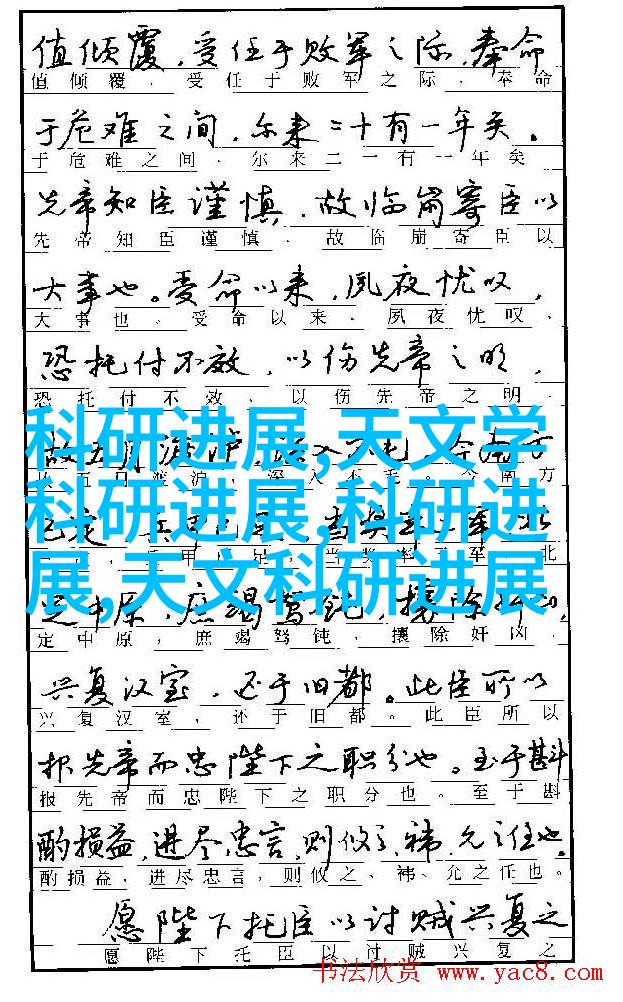 值倾覆，受任于败军之际，奉命
值倾覆，受任于败军之际，奉命
于危难之间，尔来二十有一年矣。
于危难之间，尔来二一有一年矣
先帝知臣谨慎，故临崩寄臣以
先帝知臣谨慎，故临崩寄臣以
大事也。受命以来，夙夜忧叹，
大事也。受命以来，夙夜忧叹，
恐托付不效，以伤先帝之明，
恐托付不效，以伤先帝之明，
科研进展,天文学
科研进展,科研进
展,天文科研进展
五月渡泸，深入不毛。今南方
定中原，庶竭驽钝，攘除奸凶，
定中原，庶竭驽钝，攘除奸凶，
兴复汉室，还于旧都。此臣所以
兴复汉室，还于旧都。此臣所以
报先帝而忠陛下之职分也。至于斟
报先帝而忠陛下之职分也。至于斟
酌损益，进尽忠言，则攸之、祎、允之任也。
酌损益，进尽忠言，则攸之、祎、允之任也。
愿陛下托臣以讨贼兴复之
愿陛下托臣以讨贼兴复之
书法欣赏 www.yac8.com